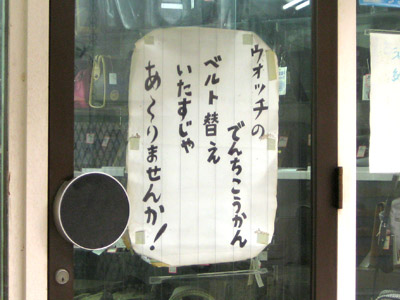 ウォッチの
でんちこうかん
ベルト替え
いたすじゃ
あ〱りませんか!